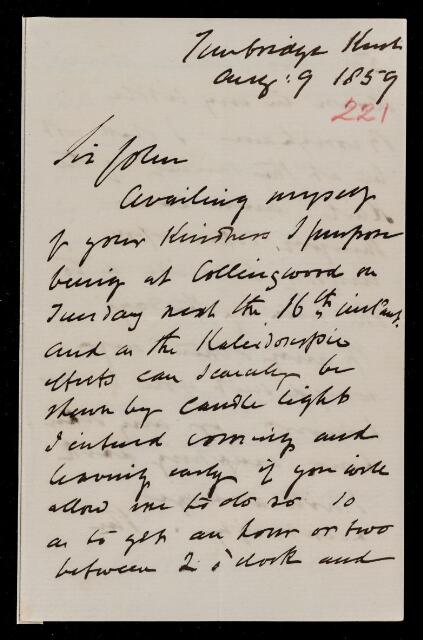 Tunbridge Kent
Aug: 9 1859
221
Sir John
Availing myself
of your Kindness I purpose
being at Collingwood on
Tuesday next the 16th instant,
and as the Kaleidoscopic
effects can scarcely be
shewn by Candle light
I intend coming and
leaving early if you will
allow me to do so so
as to get an hour or two
between 2 o'clock and